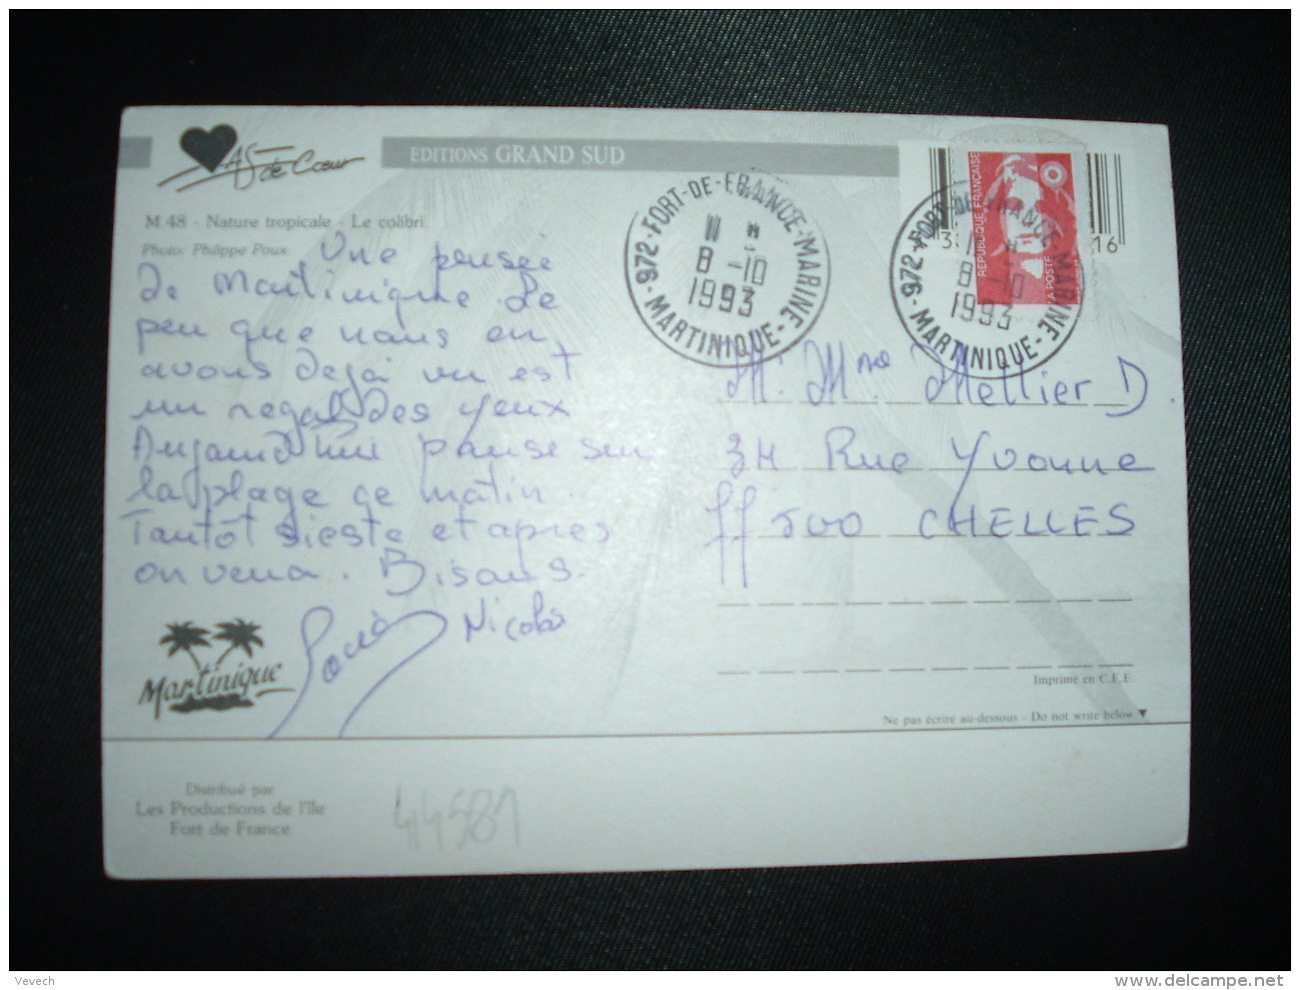 As de Cœur
EDITIONS GRAND SUD
M.48 - Nature tropicale - Le colibri.
Photo: Philippe Poux.
Une pensée
de Martinique. Le
peu que nous en
avons deja vu est
un regal des yeux
Aujourd'hui pause sur
la plage ce matin.
Tantôt sieste et apres
on verra. Bisous.
Nicolas
Martinique
Distribué par
Les Productions de l'île
Fort de France
44581
972-FORT-DE-FRANCE-MARINE-MARTINIQUE-
11 H
8 -10
1993
972-FORT-DE-FRANCE-MARINE-MARTINIQUE-
11 H
8 -10
1993
REPUBLIQUE FRANÇAISE
LA POSTE
38
16
M. Mme Mellier D
34 Rue Yvonne
77500 CHELLES
Imprimé en C.E.E.
Ne pas écrire au-dessous - Do not write below ▼
Vevech
www.delcampe.net